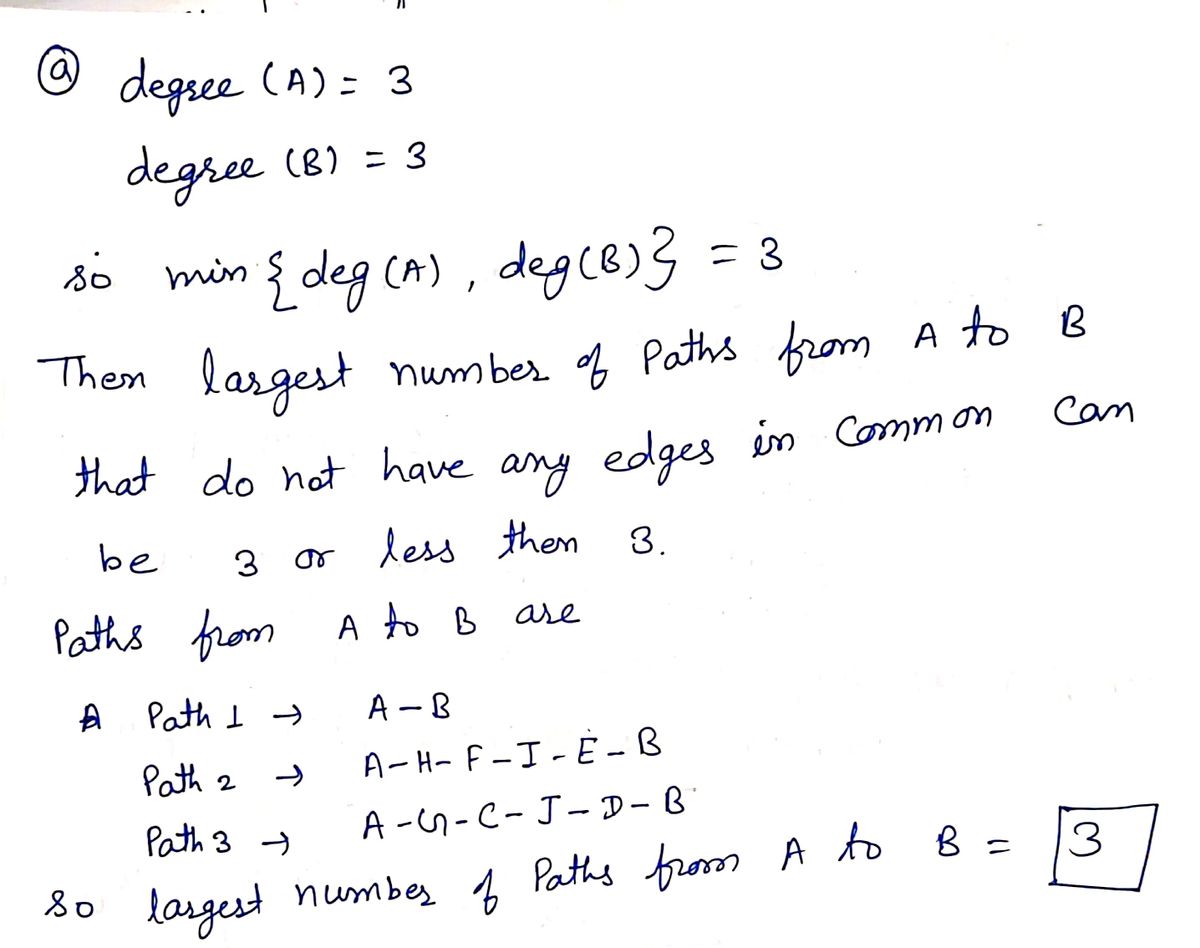 ⓐ degree (A) = 3
degree (B) = 3
so min { deg (A) , deg (B) } = 3
Then largest number of Paths from A to B
that do not have any edges in Common can
be 3 or less then 3.
Paths from A to B are
Path 1 → A - B
Path 2 → A - H - F - I - E - B
Path 3 → A - G - C - J - D - B
So largest number of Paths from A to B = 3